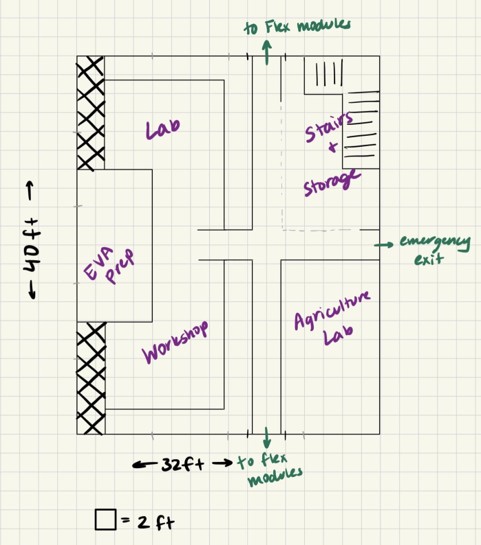 to Flex modules
Lab
Stairs
+
Storage
40ft
EVA
prep
emergency
exit
Agriculture
Lab
Workshop
32ft
to flex
modules
= 2 ft